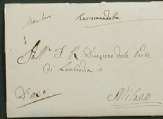 Mantova Raccomandata
All' I. R. Direzione delle Poste
di Lombardia in
Milano